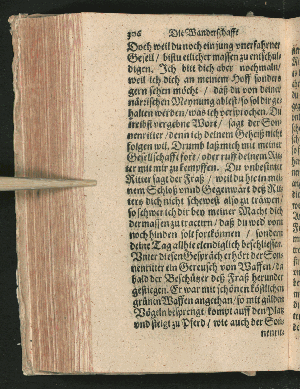 306 Die Wanderschafft
Doch weil du noch ein jung vnerfahrner
Gesell / bistu etlicher massen zu entschul-
digen. Ich bitt dich aber nochmaln /
weil ich dich an meinem Hoff sonders
gern sehen möcht / daß du von deiner
närrischen Meynung ablest / so sol dir ge-
halten werden / was ich versprochen. Du
treibst vergebne Wort / sagt der Son-
nenritter / denn ich deinem Geheiß nicht
folgen wil. Drumb laß mich mit meiner
Gesellschafft fort / oder ruff deinem Rit-
ter mit mir zu kempffen. Du vnbesinter
Ritter sagt der Fraß / weil du hie in mei-
nem Schloß vnnd Gegenwärt deß Rit-
ters dich nicht schewest also zu träwen /
so schwer ich dir bey meiner Macht dich
dermassen zu tractiern / daß du wed von
noch hinden solt fortkönnen / sondern
deine Tag allhie elendiglich beschliessen.
Vnter diesen Gespräch erhört der Son-
nenritter ein Gereusch von Waffen / da
bald der Beschützer deß Fraß herunder
gestiegen. Er war mit schönen köstlichen
grünen Waffen angethan / so mit gülden
Vögeln besprengt / kompt auff den Platz
vnd steigt zu Pferd / wie auch der Son-
nenritt-